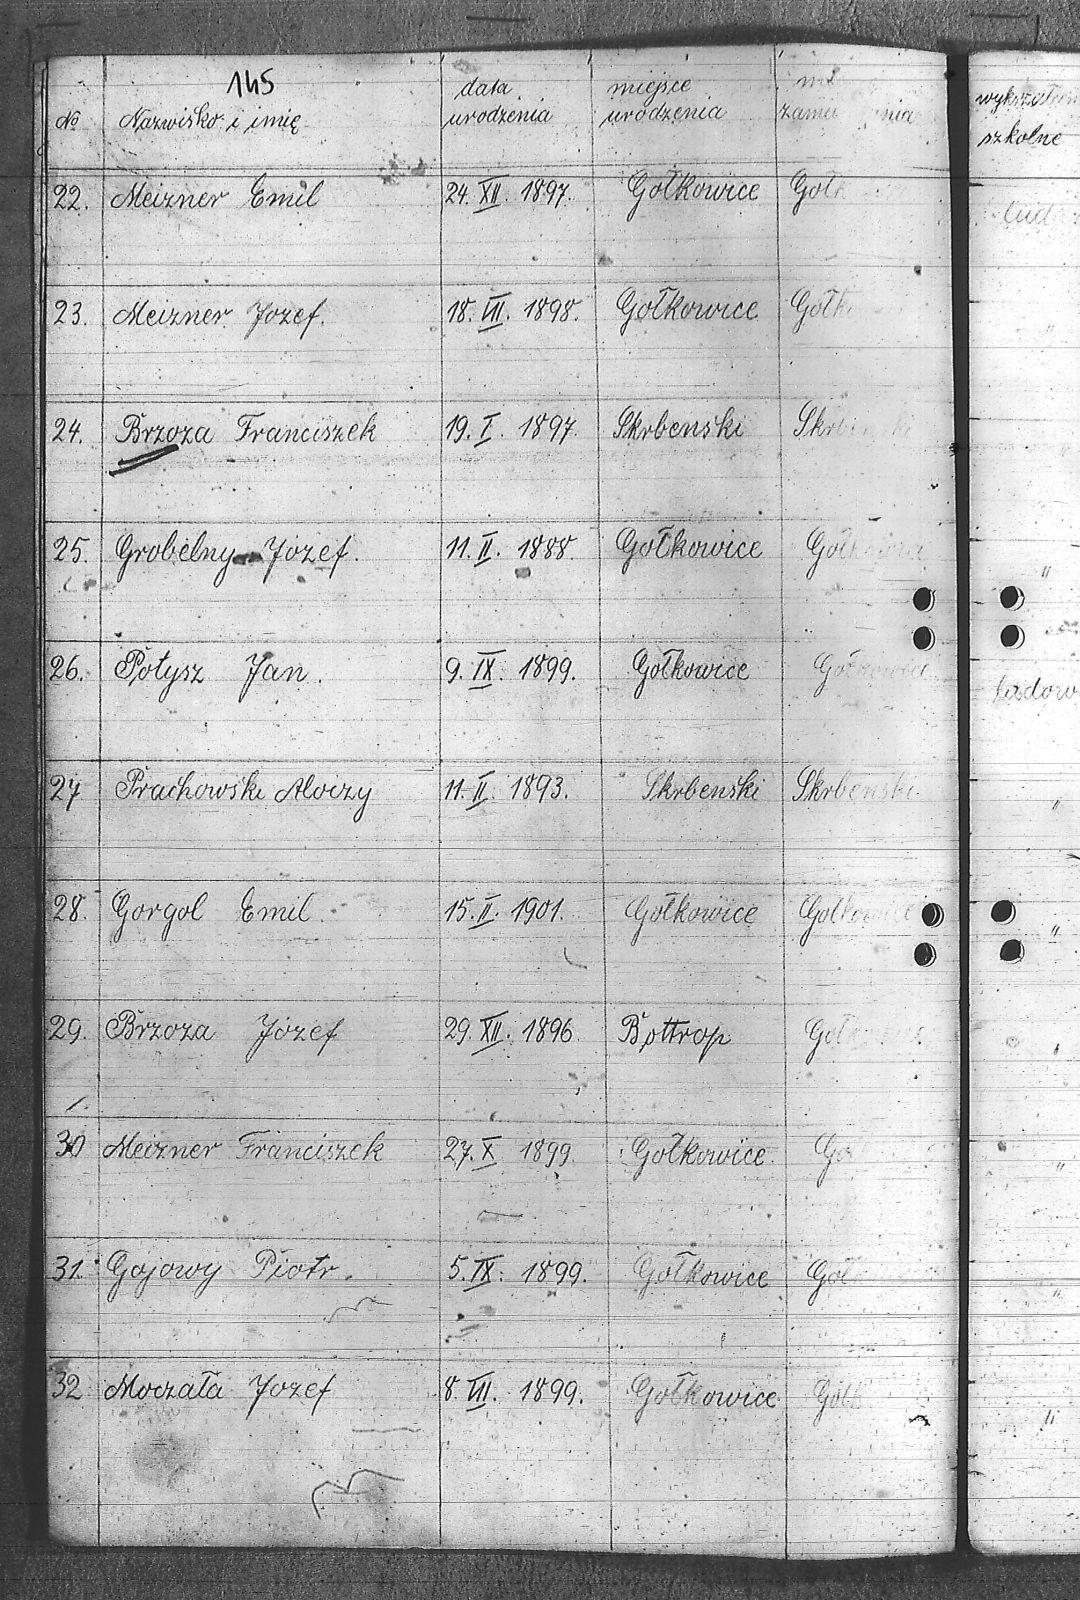 145
№ Nazwisko i imię data urodzenia miejsce urodzenia wykształcenie szkolne
22. Meizner Emil 24. XII. 1897. Gołkowice Gołk
23. Meizner Jozef. 18. VII. 1898. Gołkowice Gołk
24. Brzoza Franciszek 19. I. 1897 Skrbenski Skrbenski
25. Grobelny Józef. 11. II. 1888 Gołkowice Gołkowice "
26. Połysz Jan. 9. IX. 1899. Gołkowice Gołkowice ludow
27 Prachowski Aloizy 11. II. 1893. Skrbenski Skrbenski "
28. Gorgol Emil. 15. II. 1901. Gołkowice Gołkowice "
29. Brzoza Józef 29. XII. 1896. Bottrop Gołkowice
30 Meizner Franciszek 27. X 1899 Gołkowice Go "
31. Gajowy Piotr. 5. IX. 1899. Gołkowice Goł "
32 Moczała Jozef 8 VII. 1899. Gołkowice Gołk "